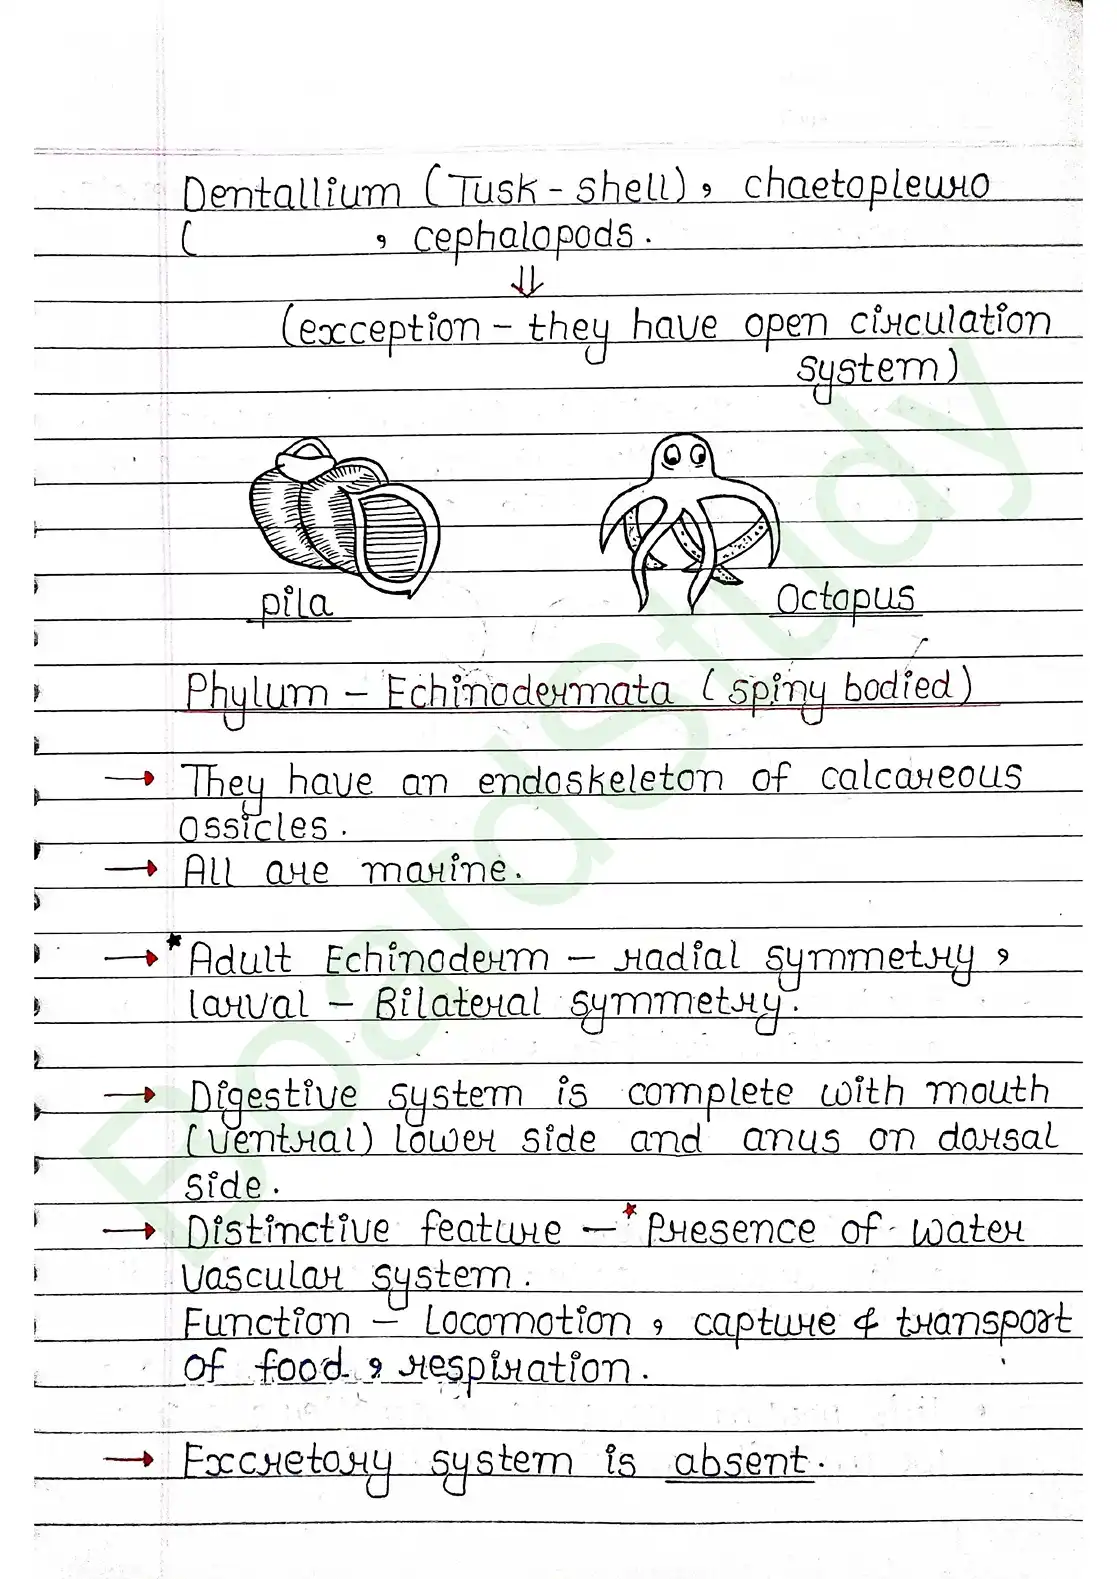 Dentallium (Tusk-shell), chaetopleura
( , cephalopods.
⇓
(exception - they have open circulation
system)
pila
Octopus
Phylum - Echinodermata (spiny bodied)
→ They have an endoskeleton of calcareous
ossicles.
→ All are marine.
→ *Adult Echinoderm - radial symmetry,
larval - Bilateral symmetry.
→ Digestive system is complete with mouth
(ventral) lower side and anus on dorsal
side.
→ Distinctive feature - *Presence of water
vascular system.
Function - Locomotion, capture & transport
of food, respiration.
→ Excretory system is absent.
BoardStudy